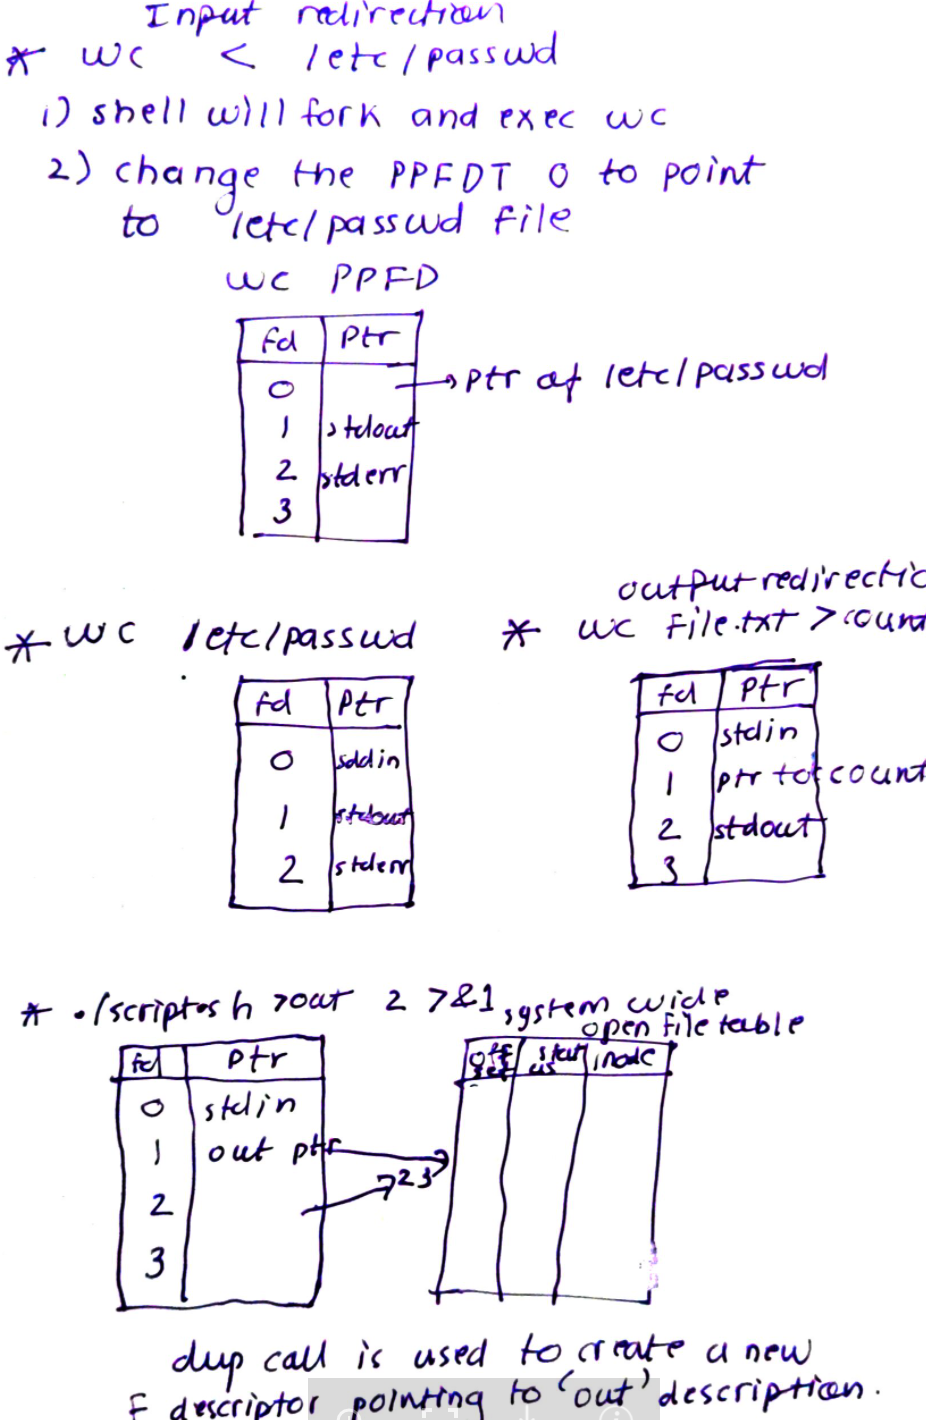 Input redirection
* wc < /etc/passwd
1) shell will fork and exec wc
2) change the PPFDT 0 to point
to /etc/passwd file
wc PPFD
fd Ptr
0 → ptr of /etc/passwd
1 stdout
2 stderr
3
* wc /etc/passwd
fd Ptr
0 stdin
1 stdout
2 stderr
output redirectio
* wc file.txt > count
fd Ptr
0 stdin
1 ptr to count
2 stdout
3
* ./script.sh >out 2 >&1
fd Ptr
0 stdin
1 out ptr
2
3
723
system wide
open file table
offset status inode
dup call is used to create a new
F descriptor pointing to 'out' description.